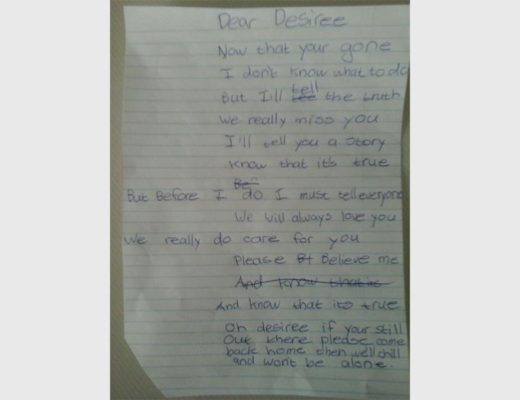 Dear Desiree
Now that your gone
I don't know what to do
But I'll tell the truth
We really miss you
I'll tell you a story
Know that it's true
Bef
But Before I do I must tell everyone
We will always love you
We really do care for you
Please Bt Believe me
And know that is
And know that its true
Oh desiree if your still
Out there please come
back home then we'll chill
and won't be alone.